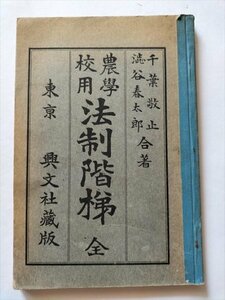 千葉敬止
澁谷春太郎
合著
農學校用
法制階梯 全
東京 興文社藏版